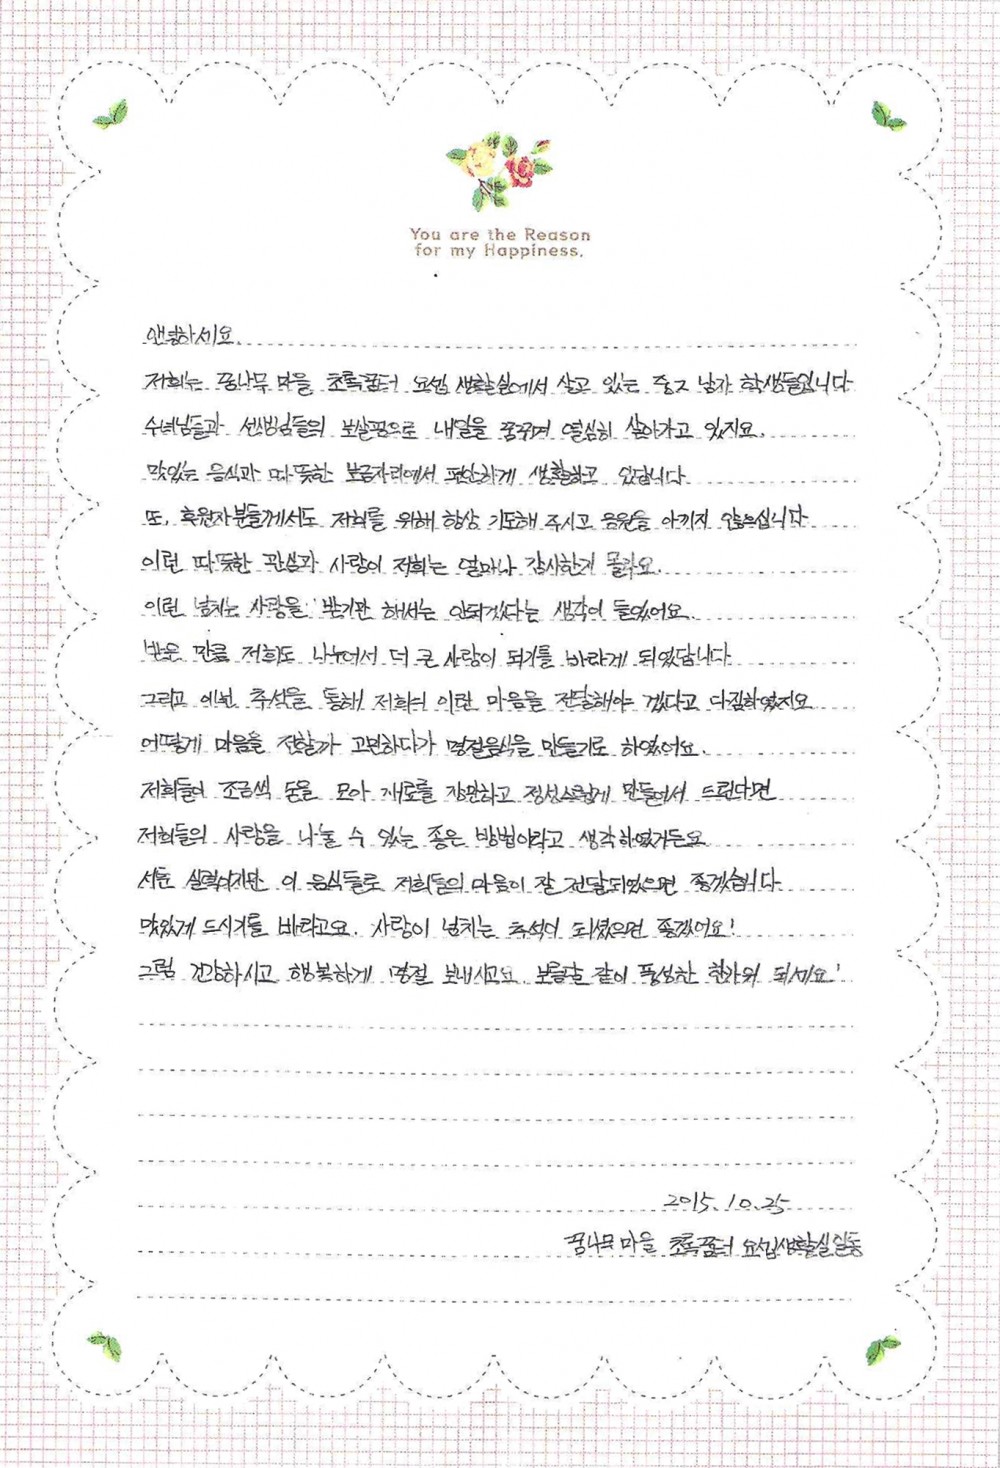 You are the Reason
for my Happiness.
안녕하세요.
저희는 꿈나무 마을 초록꿈터 요셉 생활실에서 살고 있는 중고 남자 학생들입니다
수녀님들과 선생님들의 보살핌으로 내일을 꿈꾸며 열심히 살아가고 있지요.
맛있는 음식과 따뜻한 보금자리에서 편안하게 생활하고 있답니다.
또, 후원자분들께서도 저희를 위해 항상 기도해 주시고 응원을 아끼지 않으십니다
이런 따뜻한 관심과 사랑이 저희는 얼마나 감사한지 몰라요.
이런 넘치는 사랑을 받기만 해서는 안되겠다는 생각이 들었어요.
받은 만큼 저희도 나누어서 더 큰 사랑이 되기를 바라게 되었답니다
그리고 이번 추석을 통해 저희의 이런 마음을 전달해야 겠다고 다짐하였지요
어떻게 마음을 전할까 고민하다가 명절음식을 만들기로 하였어요.
저희들이 조금씩 돈을 모아 재료를 장만하고 정성스럽게 만들어서 드린다면
저희들의 사랑을 나눌 수 있는 좋은 방법이라고 생각하였거든요
서툰 실력이지만 이 음식들로 저희들의 마음이 잘 전달되었으면 좋겠습니다.
맛있게 드시기를 바라고요. 사랑이 넘치는 추석이 되셨으면 좋겠어요!
그럼 건강하시고 행복하게 명절 보내시고요. 보름달 같이 풍성한 한가위 되세요!
2015.10.25
꿈나무 마을 초록꿈터 요셉생활실 일동